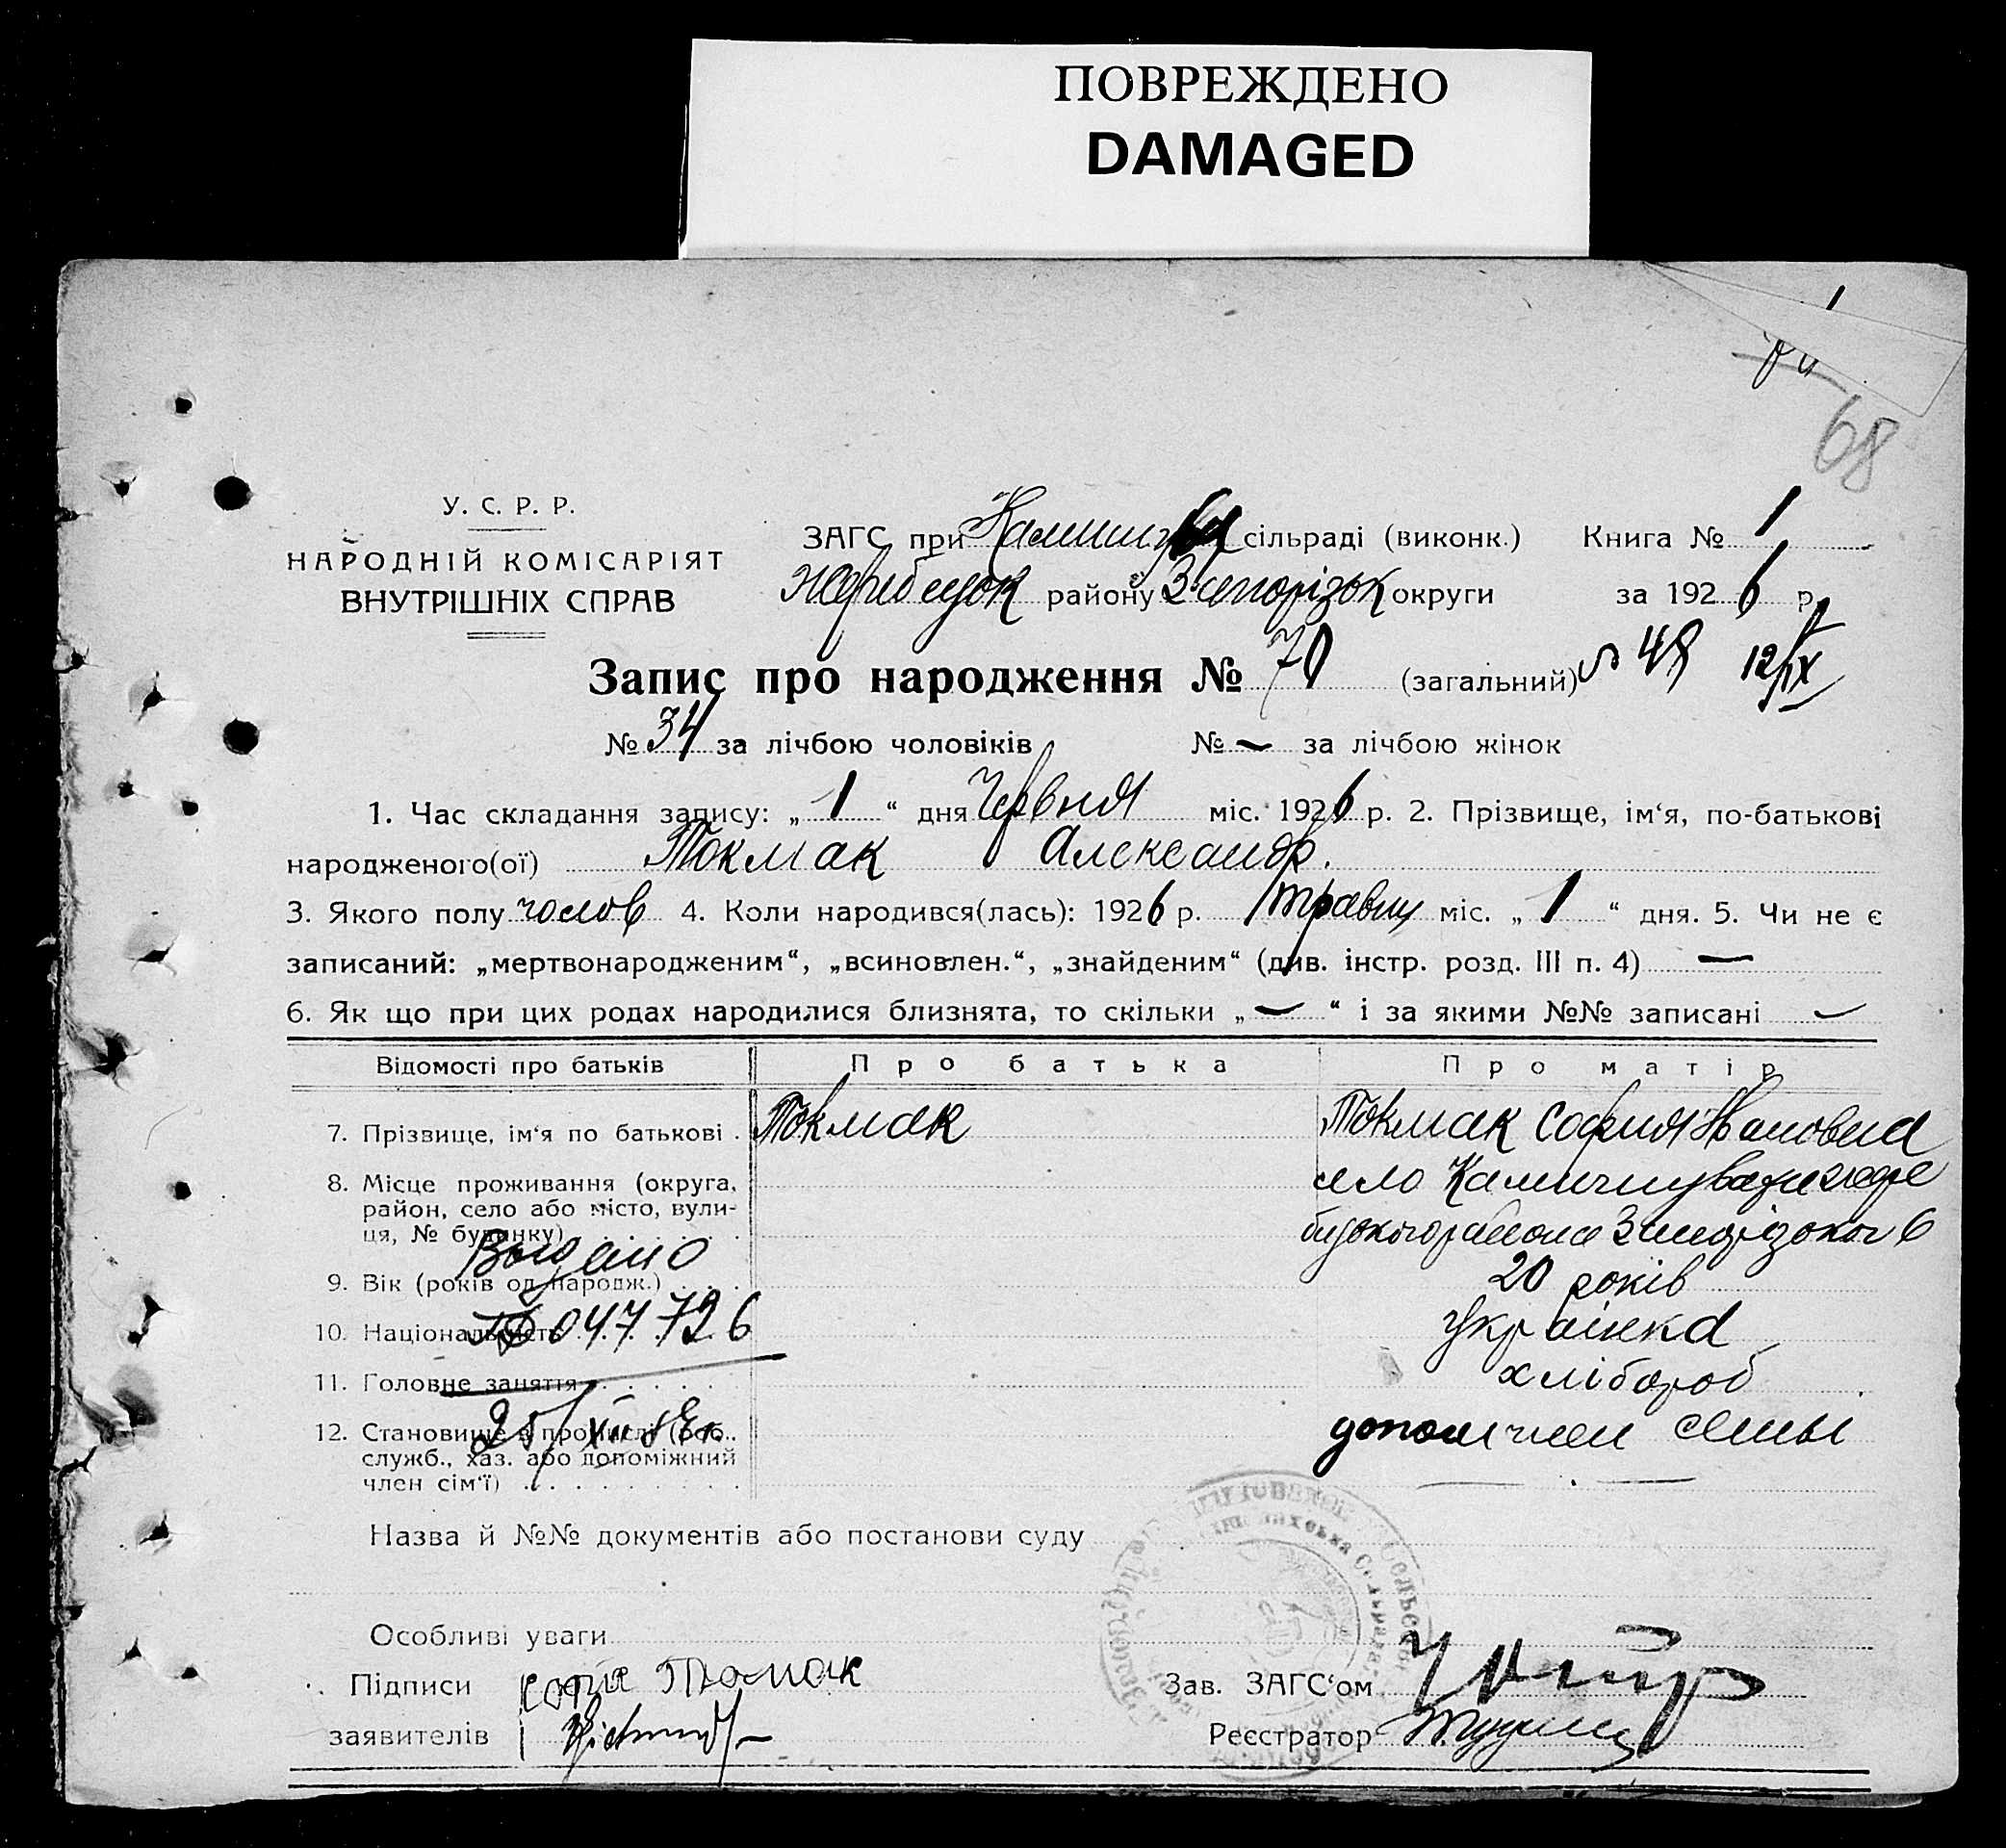 ПОВРЕЖДЕНО
DAMAGED
1
68
У. С. Р. Р.
НАРОДНІЙ КОМІСАРІЯТ
ВНУТРІШНІХ СПРАВ
ЗАГС при сільраді (виконк.) Книга № 1
району Запорізьк округи за 1926 р.
Запис про народження № 70 (загальний) № 48 12/IX
№ 34 за лічбою чоловіків № — за лічбою жінок
1. Час складання запису: „ 1 “ дня Червня міс. 1926 р. 2. Прізвище, ім‘я, по-батькові
народженого(ої) Токмак Александр.
3. Якого полу чолов 4. Коли народився(лась): 1926 р. травня міс. „ 1 “ дня. 5. Чи не є
записаний: „мертвонародженим“, „всиновлен.“, „знайденим“ (див. інстр. розд. III п. 4) —
6. Як що при цих родах народилися близнята, то скільки „ — “ і за якими №№ записані —
Відомості про батьків Про батька Про матір
7. Прізвище, ім‘я по батькові . Токмак Токмак София Ивановна
8. Місце проживання (округа,
район, село або місто, вули-
ця, № будинку)
село
Выдано
9. Вік (років од народж.) 20 років
10. Національність Українка
047726
11. Головне заняття хлібороб
25/XII
12. Становище в промислі (роб.,
служб., хаз. або допоміжний
член сім‘ї)
допом член семы
Назва й №№ документів або постанови суду
Особливі уваги
Підписи Токмак
заявителів
Зав. ЗАГС‘ом
Реєстратор